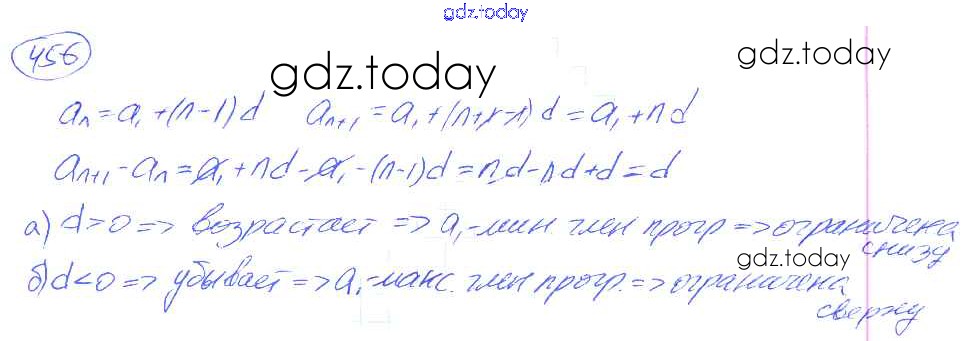 gdz.today
456
gdz.today
gdz.today
aₙ = a₁ + (n-1)d   aₙ₊₁ = a₁ + (n+1-1)d = a₁ + nd
aₙ₊₁ - aₙ = a₁ + nd - a₁ - (n-1)d = nd - nd + d = d
а) d > 0 => возрастает => a₁ - мин член прогр => ограничена
снизу
gdz.today
б) d < 0 => убывает => a₁ - макс. член прогр. => ограничена
сверху